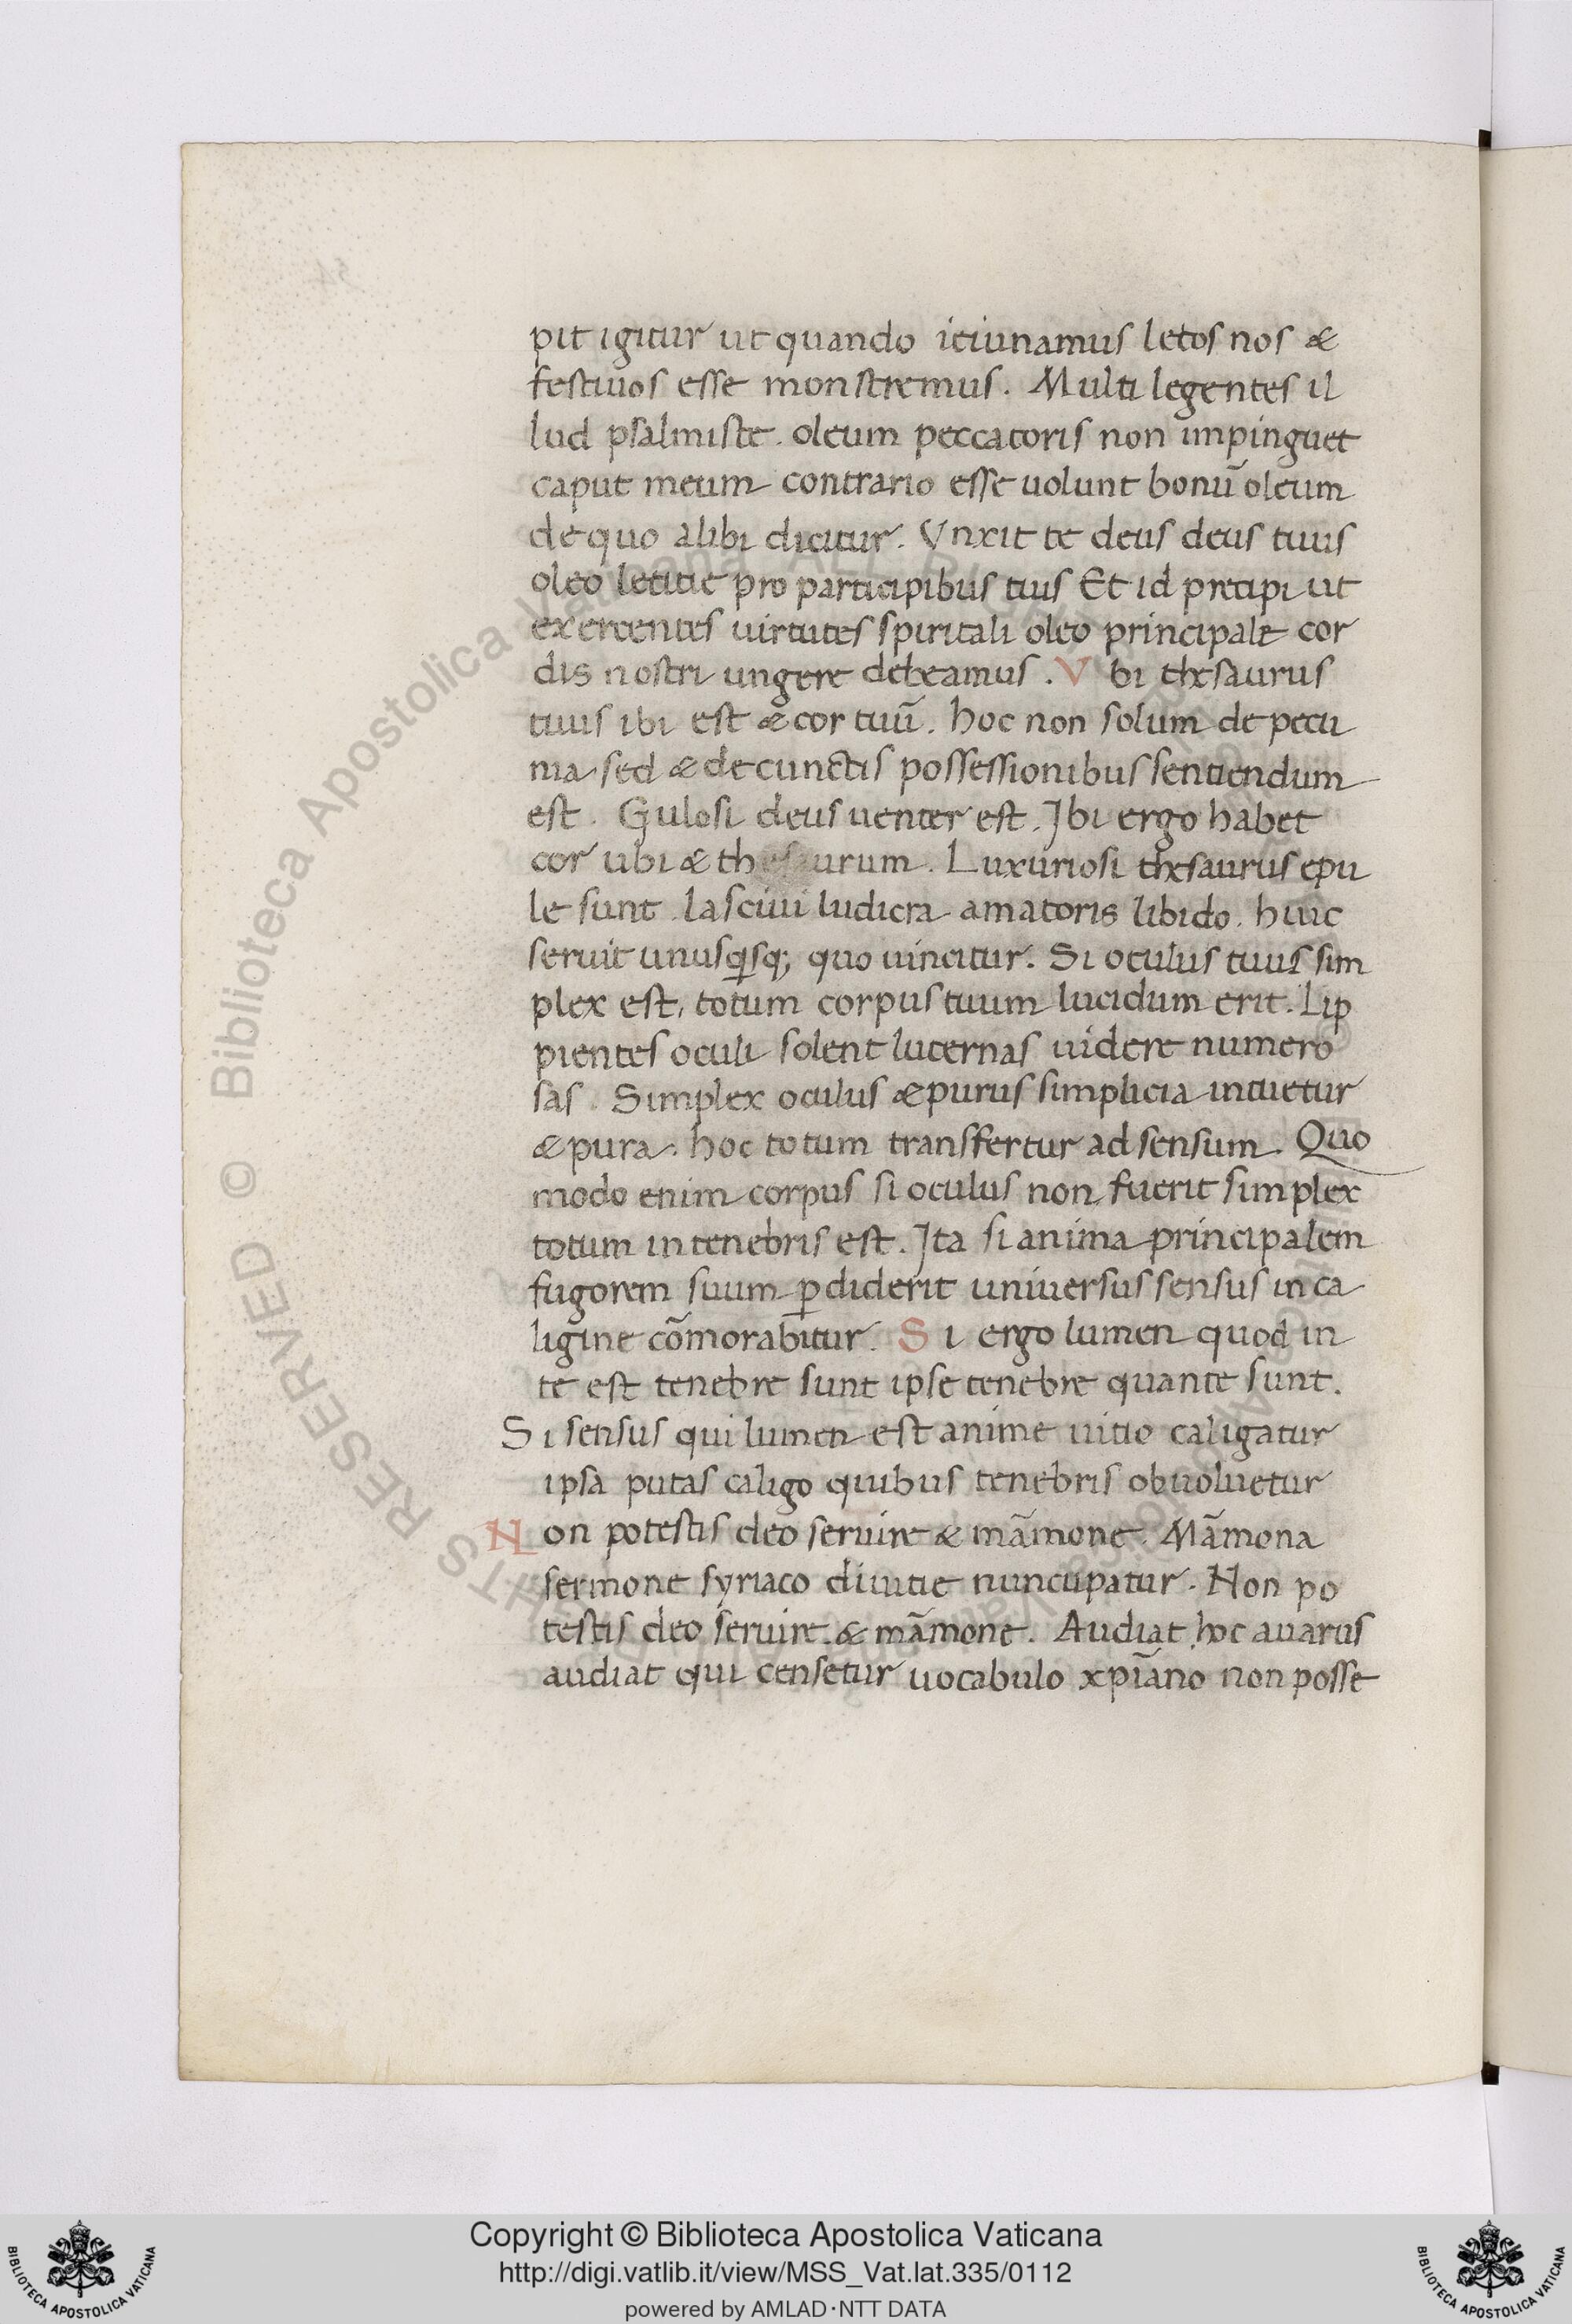 pit igitur ut quando ieiunamus letos nos &
festiuos esse monstremus. Multi legentes il
lud psalmiste. oleum peccatoris non impinguet
caput meum contrario esse uolunt bonū oleum
de quo alibi dicitur. Vnxit te deus deus tuus
oleo letitie pro participibus tuis Et id precipi ut
exercentes uirtutes spiritali oleo principale cor
dis nostri ungere debeamus. Vbi thesaurus
tuus ibi est & cor tuū. hoc non solum de pecu
nia sed & de cunctis possessionibus sentiendum
est. Gulosi deus uenter est. Ibi ergo habet
cor ubi & thesaurum. Luxuriosi thesaurus epu
le sunt. lasciui ludicra amatoris libido. huic
seruit unusq̄sq; quo uincitur. Si oculus tuus sim
plex est, totum corpus tuum lucidum erit. Lip
pientes oculi solent lucernas uidere numero
sas. Simplex oculus & purus simplicia intuetur
& pura. hoc totum transfertur ad sensum. Quo
modo enim corpus si oculus non fuerit simplex
totum in tenebris est. Ita si anima principalem
fugorem suum ꝑdiderit uniuersus sensus in ca
ligine cōmorabitur. Si ergo lumen quod in
te est tenebre sunt ipse tenebre quante sunt.
Si sensus qui lumen est anime uitio caligatur
ipsa putas caligo quibus tenebris obuoluetur
Non potestis deo seruire & māmone. Māmona
sermone syriaco diuitie nuncupatur. Non po
testis deo seruire & māmone. Audiat hoc auarus
audiat qui censetur uocabulo xp̄iano non posse
Copyright © Biblioteca Apostolica Vaticana
http://digi.vatlib.it/view/MSS_Vat.lat.335/0112
powered by AMLAD·NTT DATA